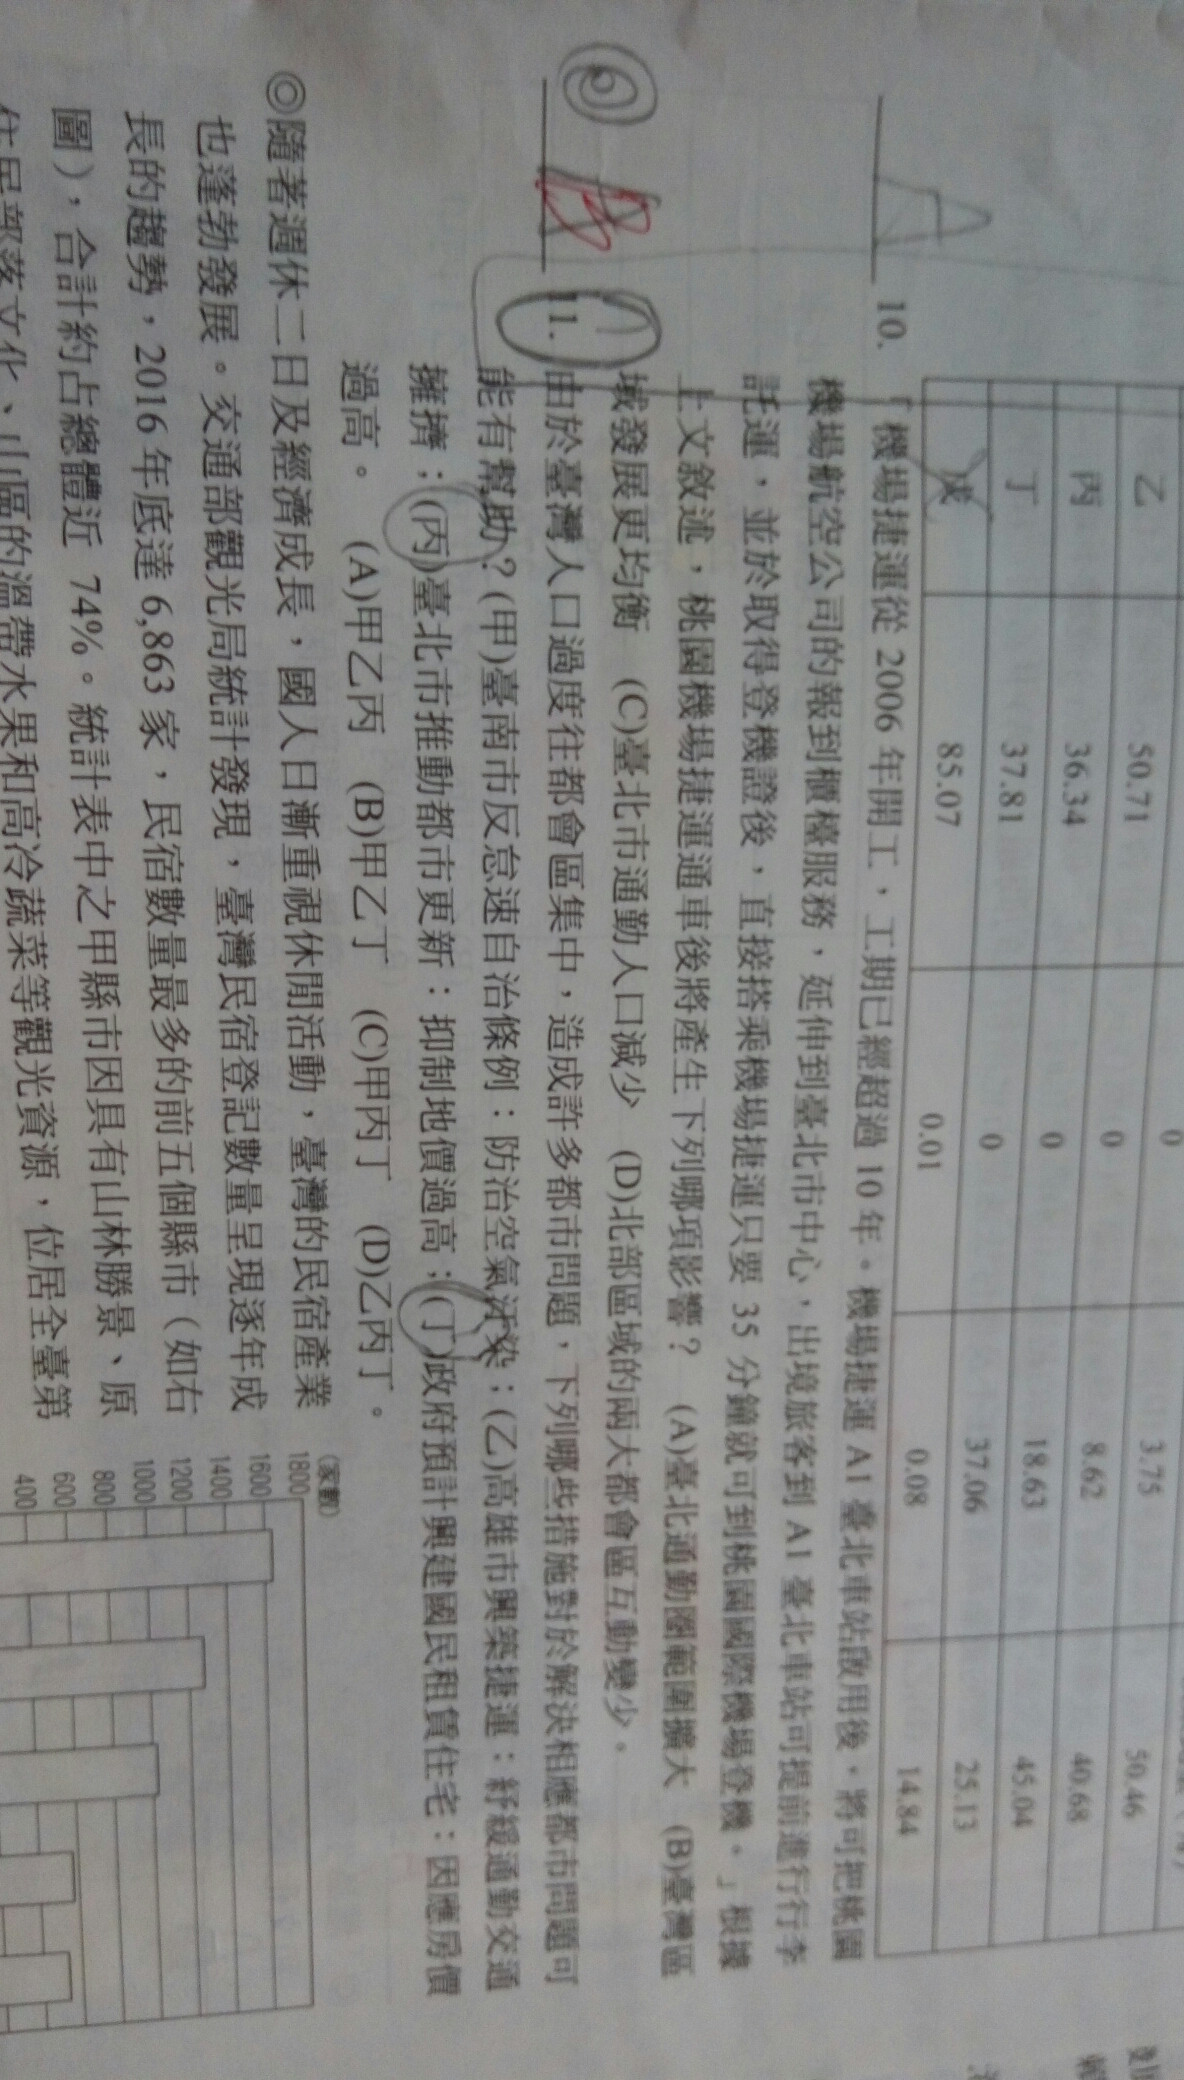 乙 50.71 0 3.75 50.46
丙 36.34 0 8.62 40.68
丁 37.81 0 18.63 45.04
戊 85.07 0 37.06 25.13
0.01 0.08 14.84
A 10. 「機場捷運從 2006 年開工，工期已經超過 10 年。機場捷運 A1 臺北車站啟用後，將可把桃園
機場航空公司的報到櫃檯服務，延伸到臺北市中心，出境旅客到 A1 臺北車站可提前進行行李
託運，並於取得登機證後，直接搭乘機場捷運只要 35 分鐘就可到桃園國際機場登機。」根據
上文敘述，桃園機場捷運通車後將產生下列哪項影響？ (A)臺北通勤圈範圍擴大 (B)臺灣區
域發展更均衡 (C)臺北市通勤人口減少 (D)北部區域的兩大都會區互動變少。
11. 由於臺灣人口過度往都會區集中，造成許多都市問題，下列哪些措施對於解決相應都市問題可
能有幫助？(甲)臺南市反怠速自治條例：防治空氣汙染；(乙)高雄市興築捷運：紓緩通勤交通
擁擠；(丙)臺北市推動都市更新：抑制地價過高；(丁)政府預計興建國民租賃住宅：因應房價
過高。 (A)甲乙丙 (B)甲乙丁 (C)甲丙丁 (D)乙丙丁。
◎隨著週休二日及經濟成長，國人日漸重視休閒活動，臺灣的民宿產業
也蓬勃發展。交通部觀光局統計發現，臺灣民宿登記數量呈現逐年成
長的趨勢，2016 年底達 6,863 家，民宿數量最多的前五個縣市（如右
圖），合計約占總體近 74%。統計表中之甲縣市因具有山林勝景、原
住民部落文化、山區的溫帶水果和高冷蔬菜等觀光資源，位居全臺第
(家數)
1800
1600
1400
1200
1000
800
600
400